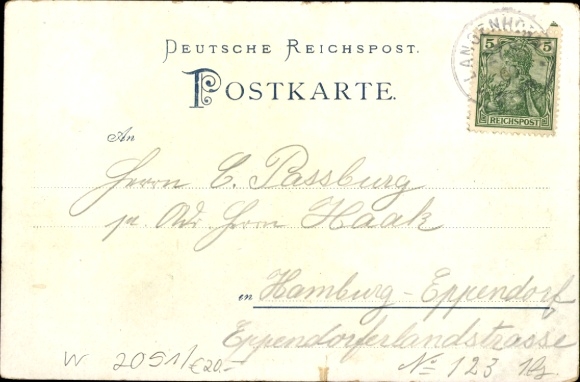 DEUTSCHE REICHSPOST.
POSTKARTE.
5 5
REICHSPOST
An
Herrn C. Passburg
pr. Adr. Herrn Haak
in Hamburg-Eppendorf
Eppendorferlandstrasse
No 123
W 2051/€20.-